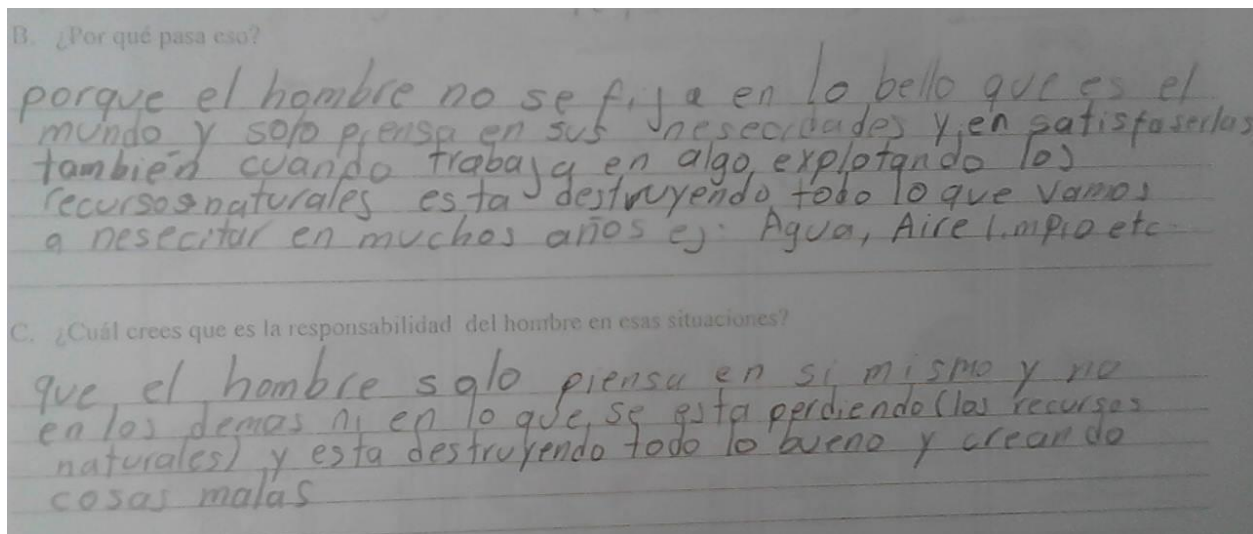 B. ¿Por qué pasa eso?
porque el hombre no se fija en lo bello que es el
mundo y solo piensa en sus nesecidades y en satisfaserlas
también cuando trabaja en algo explotando los
recursos naturales esta destruyendo todo lo que vamos
a nesecitar en muchos años ej: Agua, Aire limpio etc.
C. ¿Cuál crees que es la responsabilidad del hombre en esas situaciones?
que el hombre solo piensa en si mismo y no
en los demas ni en lo que se esta perdiendo (los recursos
naturales) y esta destruyendo todo lo bueno y creando
cosas malas